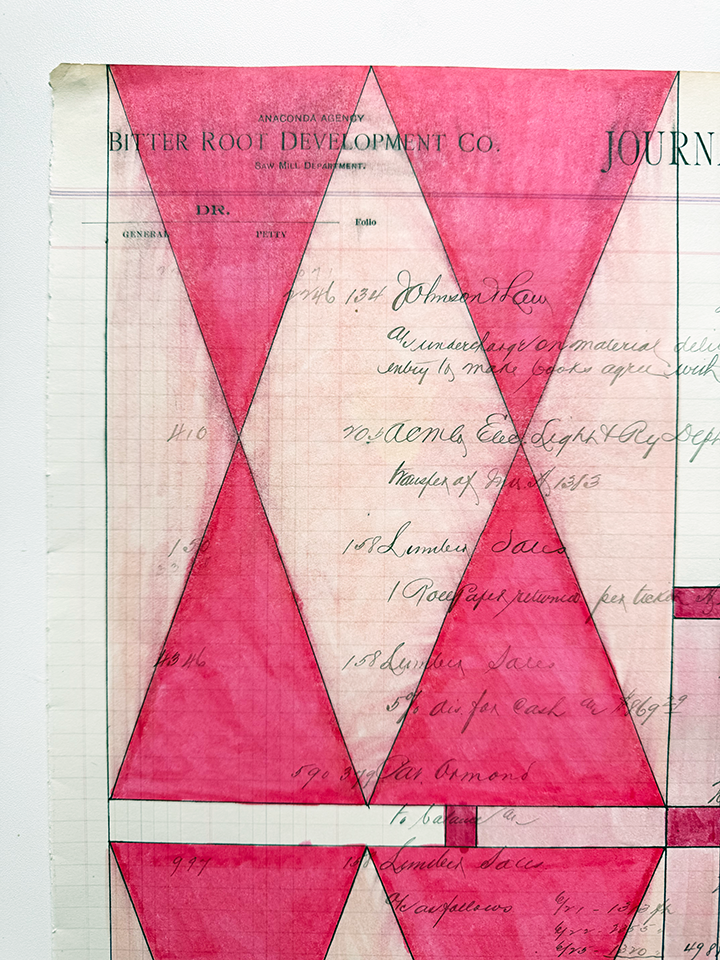 ANACONDA AGENCY
BITTER ROOT DEVELOPMENT CO.
JOURNA
SAW MILL DEPARTMENT.
DR.
Folio
GENERAL PETTY
2246 134 Johnson & Law
a/c undercharge on material deliv
entry to make books agree with
410 205 Acme Elec. Light & Ry Dept
transfer of 1313
158 Lumber Sales
1 Roll Paper returned per ticket
4346 158 Lumber Sales
5% dis for Cash a/c $869
590 379 Jas. Ormond
to balance a/c
997 158 Lumber Sales
a/c as follows
6/21 - 1313
6/22 -
6/25 - 1320 498